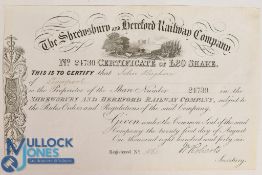 The Shrewsbury and Hereford Railway Company.
No 24739 CERTIFICATE OF £20 SHARE.
THIS IS TO CERTIFY that John
of Liverpool
is the Proprietor of the Share Number 24739 in the
SHREWSBURY AND HEREFORD RAILWAY COMPANY, subject to
the Rules Orders and Regulations of the said Company.
Given under the Common Seal of the said
Company the twenty first day of August
One thousand eight hundred and forty
Registered No
Secretary.
MULLOCK
JONES